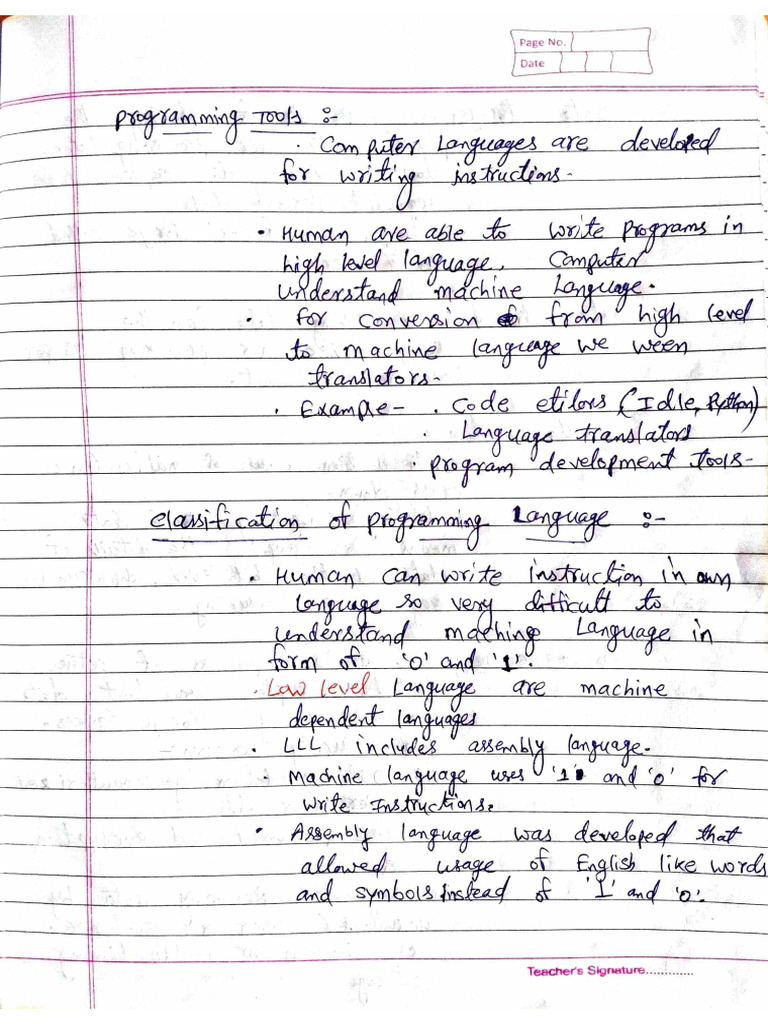 Page No.
Date
Programming Tools :-
· Computer Languages are developed
for writing instructions.
· Human are able to write programs in
high level language. Computer
understand machine Language.
· for conversion from high level
to machine language we ween
translators.
· Example - · Code etilors (Idle, Python)
· Language translators
· program development tools-
Classification of programming Language :-
· Human can write instruction in own
language so very difficult to
understand machine Language in
form of '0' and '1'.
· Low level Language are machine
dependent languages
· LLL includes assembly language.
· Machine language uses '1' and '0' for
write Instructions.
· Assembly language was developed that
allowed usage of English like words
and symbols instead of '1' and '0'.
Teacher's Signature.............